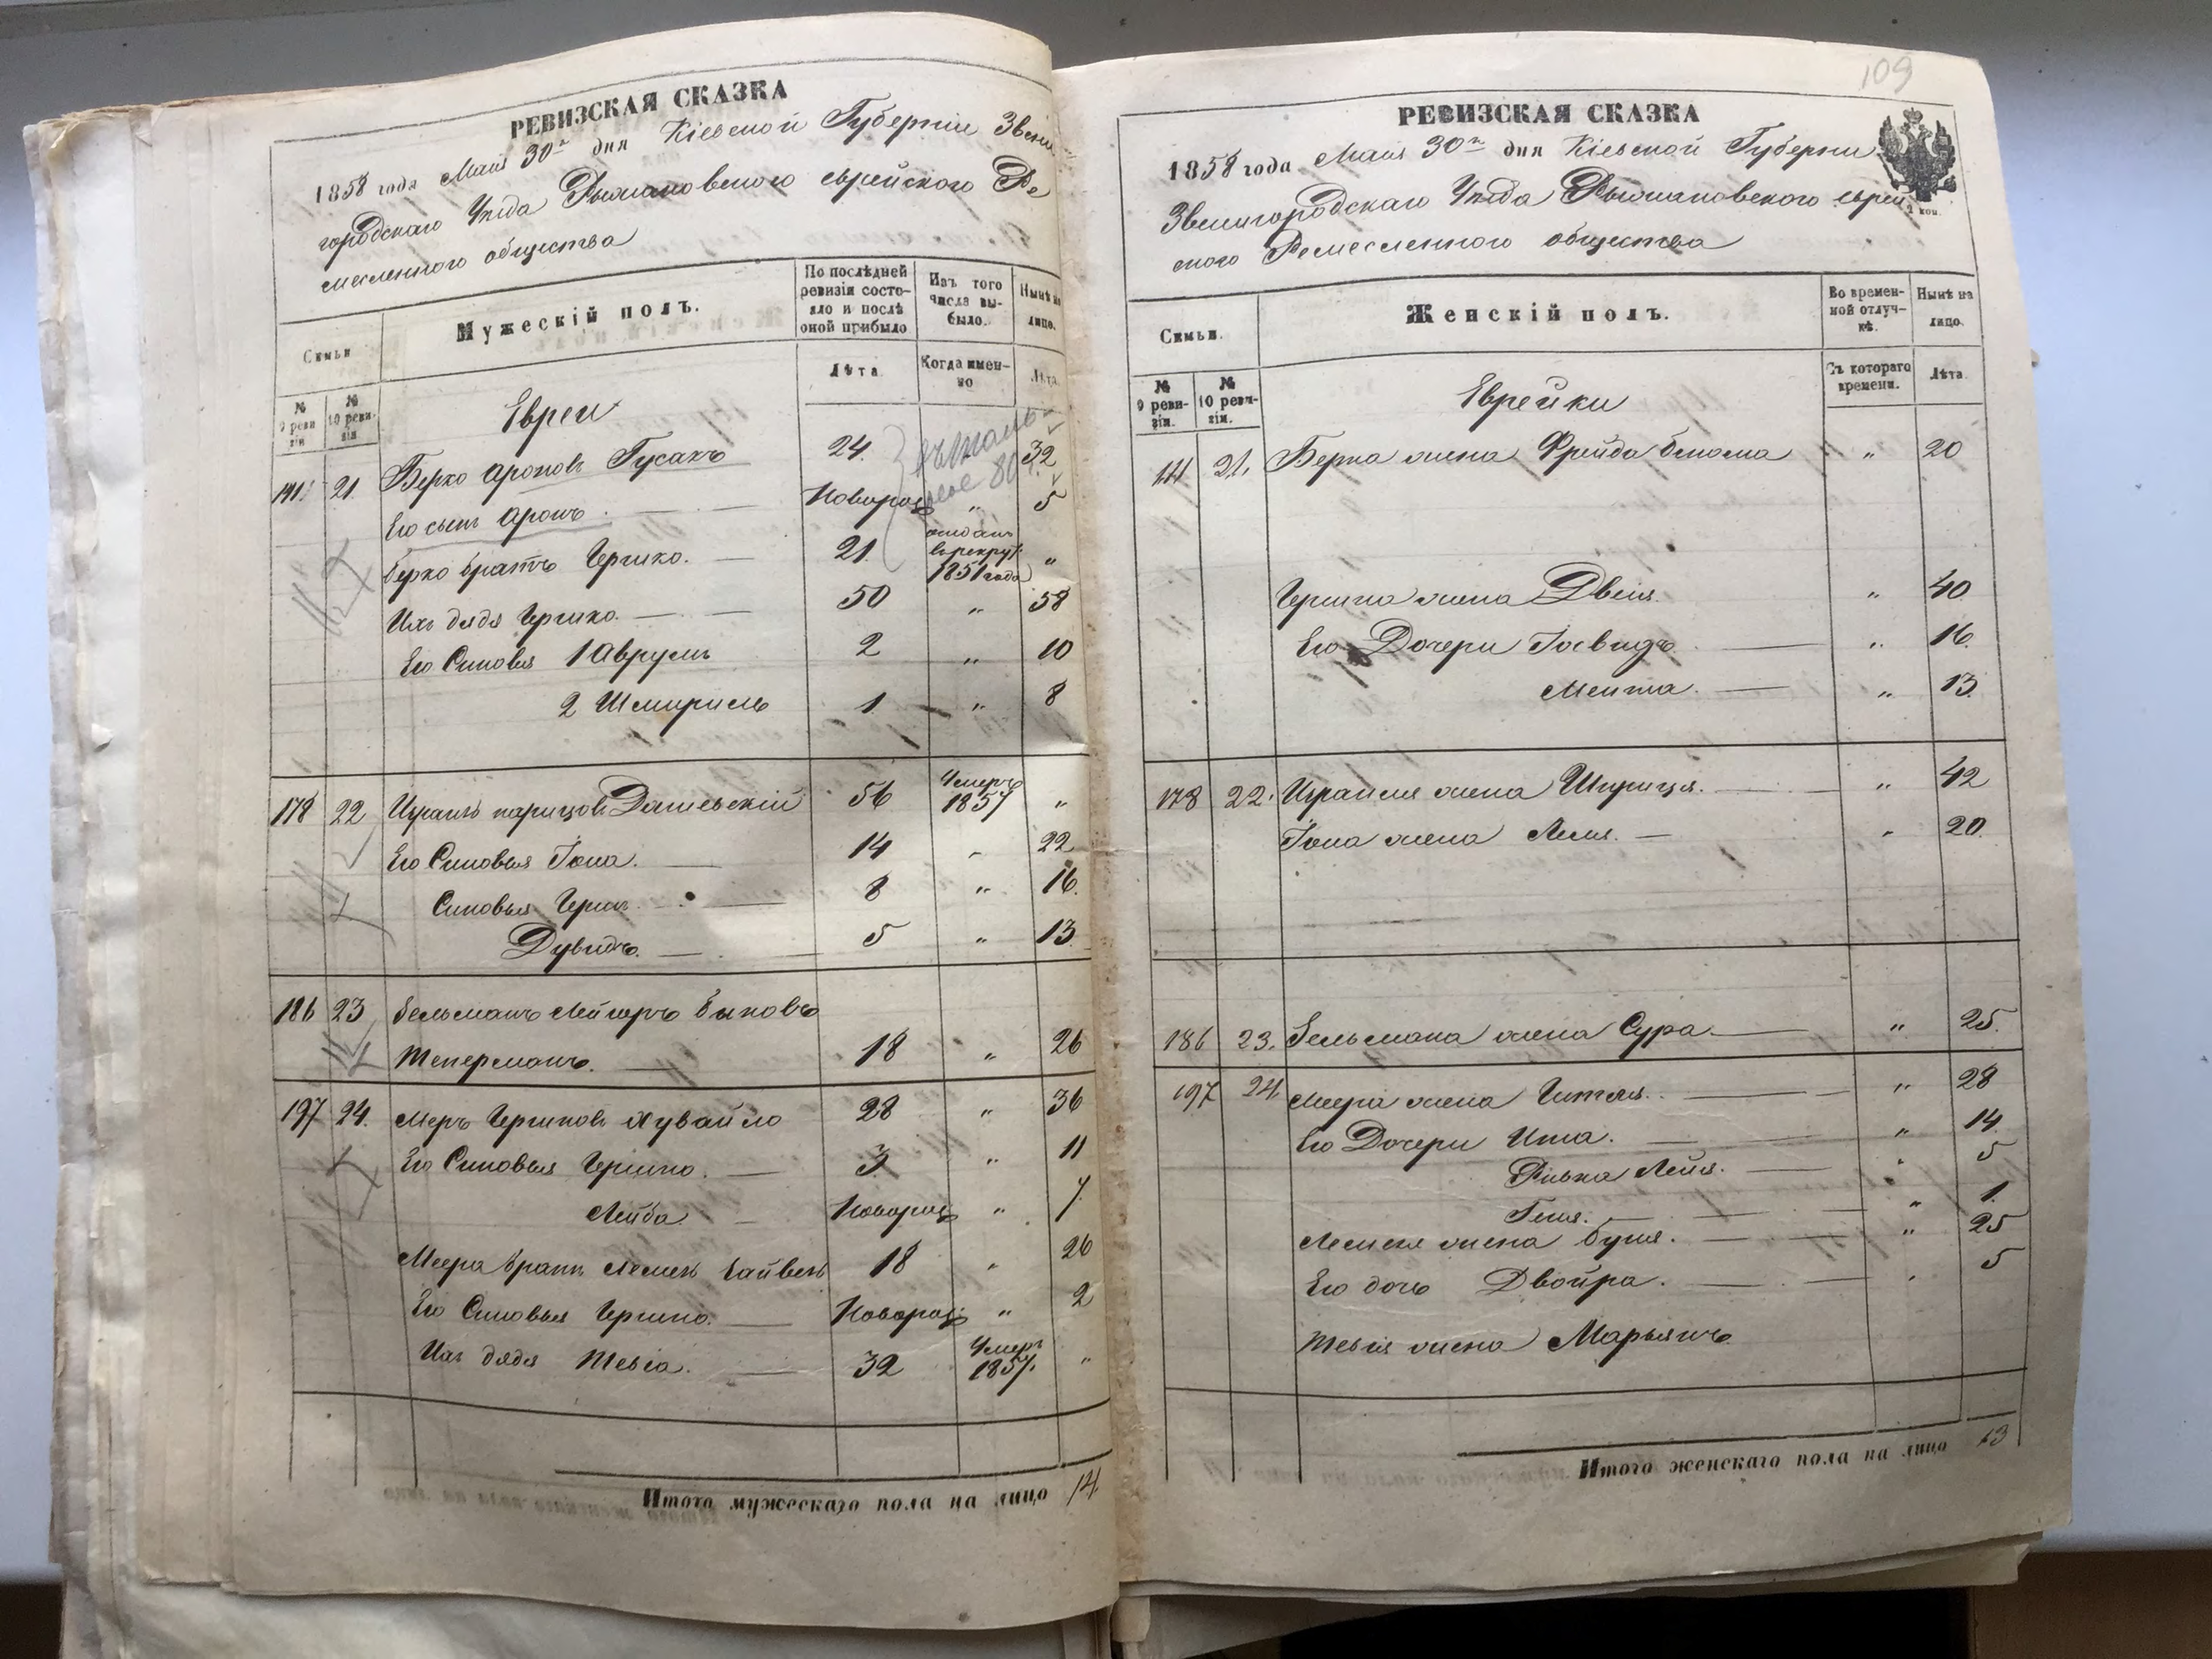 РЕВИЗСКАЯ СКАЗКА
1858 года Мая 30го дня Кіевской Губерніи Звени
городскаго Уезда Рыжановского еврейского Ре
месленного общества
Семьи
Мужескій полъ.
По послѣдней ревизіи состо-яло и послѣ оной прибыло
Изъ того числа вы-было.
Нынѣ на лицо.
№ 9 реви зіи
№ 10 реви-зіи
Лѣта
Когда имен-но
Лѣта
Евреи
21. Берко Ароновъ Гусакъ 24. 32
Его сынъ Аронъ. Новорож „ 5
Берко братъ Гершко. 21. отданъ в рекруты 1851 года „
Ихъ дядя Гершко. 50 „ 58
Его Сыновья 1 Аврумъ 2 „ 10
2 Шмириль 1 „ 8
178 22 Израиль Дашевскій 56 Умеръ 1857 „
Его Сыновья Іона. 14 „ 22
Сыновья Герш 8 „ 16.
Дувидъ. 5 „ 13
186 23 Зельманъ Мейеръ
Теперманъ. 18 „ 26
197 24. Меръ Гершковъ Хувайло 28 „ 36
Его Сыновья Гершко. 3. „ 11
Лейба Новорож „ 7
Меера братъ 18 „ 26
Его Сыновья Гершко. Новорож „ 2
Ихъ дядя Тевіа. 32 Умеръ 1857. „
Итого мужескаго пола на лицо 14
109
РЕВИЗСКАЯ СКАЗКА
1858 года Мая 30го дня Кіевской Губерніи
Звенигородскаго Уезда Рыжановского еврей
ского Ремесленного общества
Семьи.
Женскій полъ.
Во времен-ной отлуч-кѣ.
Нынѣ на лицо.
№ 9 реви-зіи.
№ 10 реви-зіи.
Съ котораго времени.
Лѣта
Еврейки
21. Берка жена Фрейда „ 20
Гершка жена Двеія. „ 40
Его Дочери „ 16.
Мента. „ 13.
178 22. Израиля жена Шприця. „ 42
Іона жена Леия. „ 20.
186 23. Зельмана жена Сура. „ 25.
197 24 Меера жена Гитля. „ 28
Его Дочери Ита. „ 14.
Ривка Лейя. „ 5
Геня. „ 1.
жена Буня. „ 25
Его дочь Двойра. „ 5
Тевія жена Марьямъ.
Итого женскаго пола на лицо 13